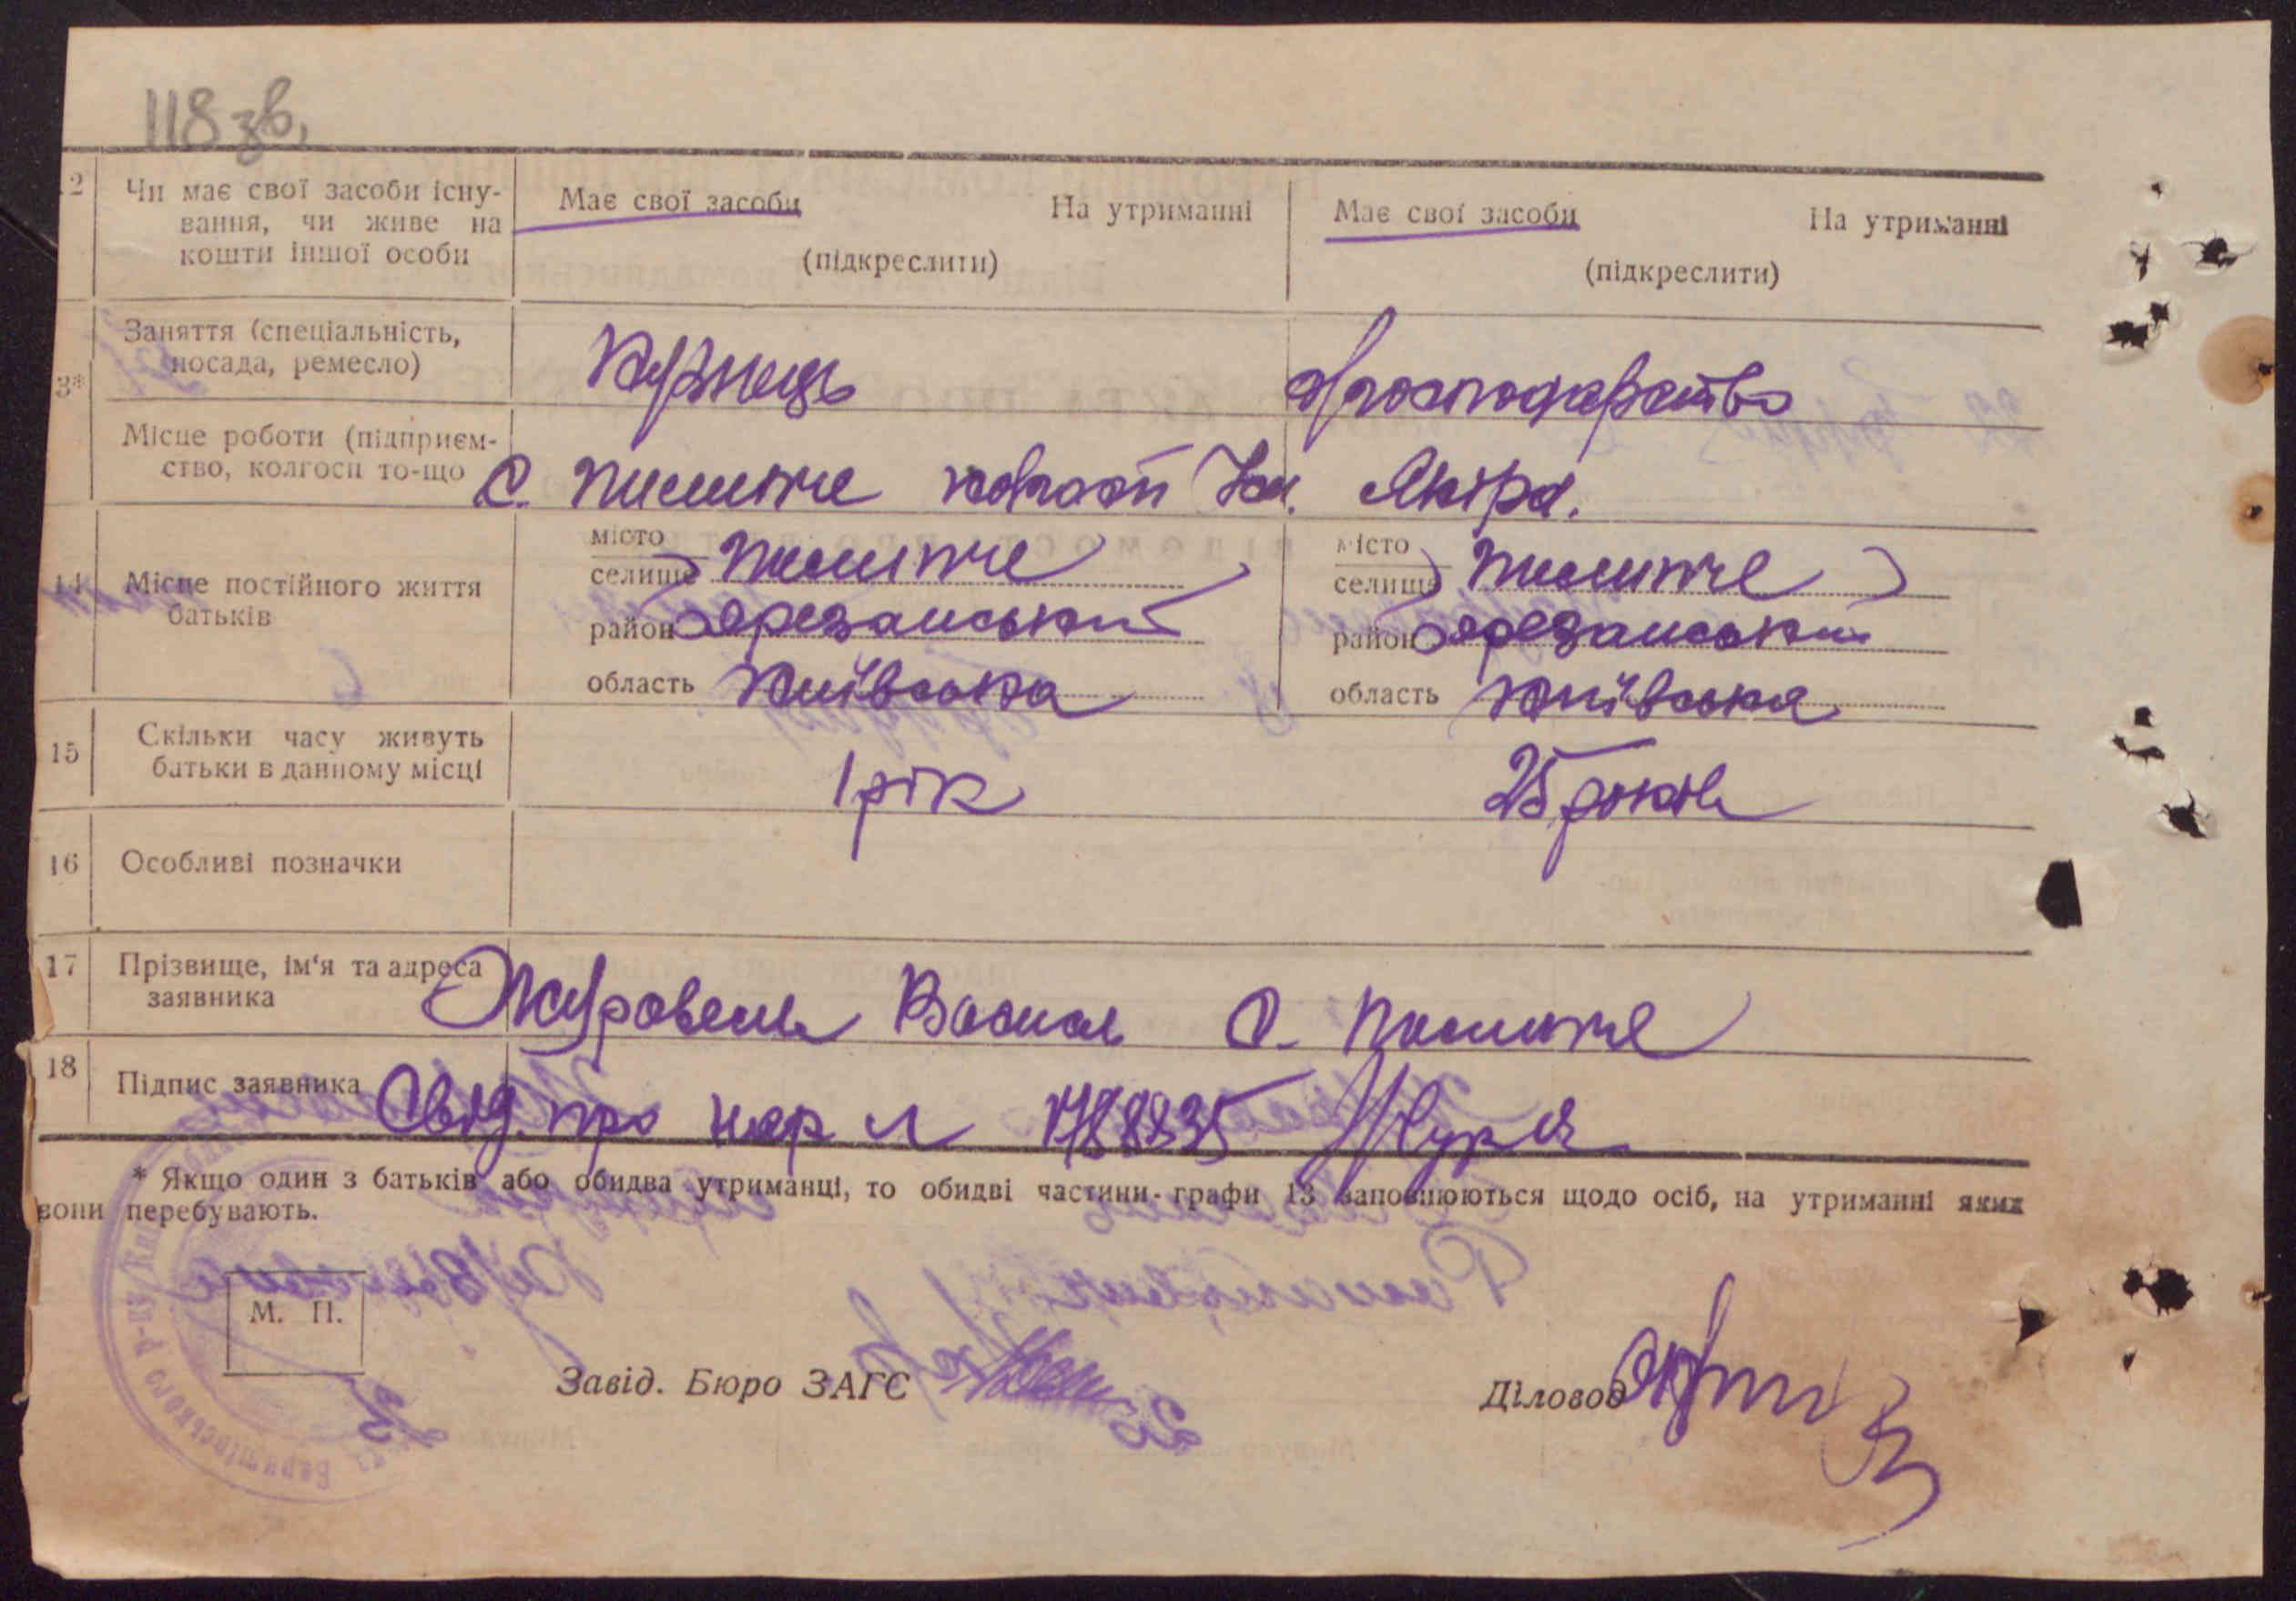 118 зв.
12 Чи має свої засоби існу-
вання, чи живе на
кошти іншої особи
Має свої засоби На утриманні
(підкреслити)
Має свої засоби На утриманні
(підкреслити)
13* Заняття (спеціальність,
посада, ремесло)
Кузнець
Місце роботи (підприєм-
ство, колгосп то-що
С. Пилипче колгосп Ім. Якіра.
14 Місце постійного життя
батьків
місто
селище Пилипче
район Березанський
область Київська
місто
селище Пилипче
район Березанський
область Київська
15 Скільки часу живуть
батьки в данному місці
1 рік
25 років
16 Особливі позначки
17 Прізвище, ім'я та адреса
заявника
Журавель Василь С. Пилипче
18 Підпис заявника
Свід. про нар
* Якщо один з батьків або обидва утриманці, то обидві частини графи 13 заповнюються щодо осіб, на утриманні яких
вони перебувають.
М. П.
Завід. Бюро ЗАГС
Діловод